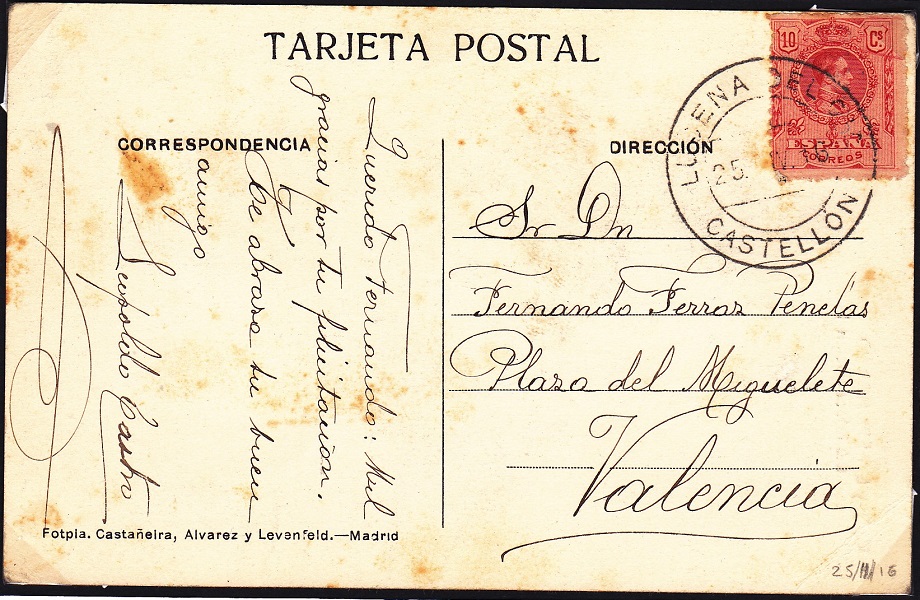 TARJETA POSTAL
CORRESPONDENCIA
Querido Fernando: Mil
gracias por tu felicitación.
Te abraza tu buen
amigo
Leopoldo Castro
Fotpia. Castañeira, Alvarez y Levenfeld.—Madrid
DIRECCIÓN
Sr Dn
Fernando Ferraz Penelas
Plaza del Miguelete
Valencia
10 Cs.
ESPAÑA
CORREOS
LUCENA
25
CASTELLÓN
25/II/16